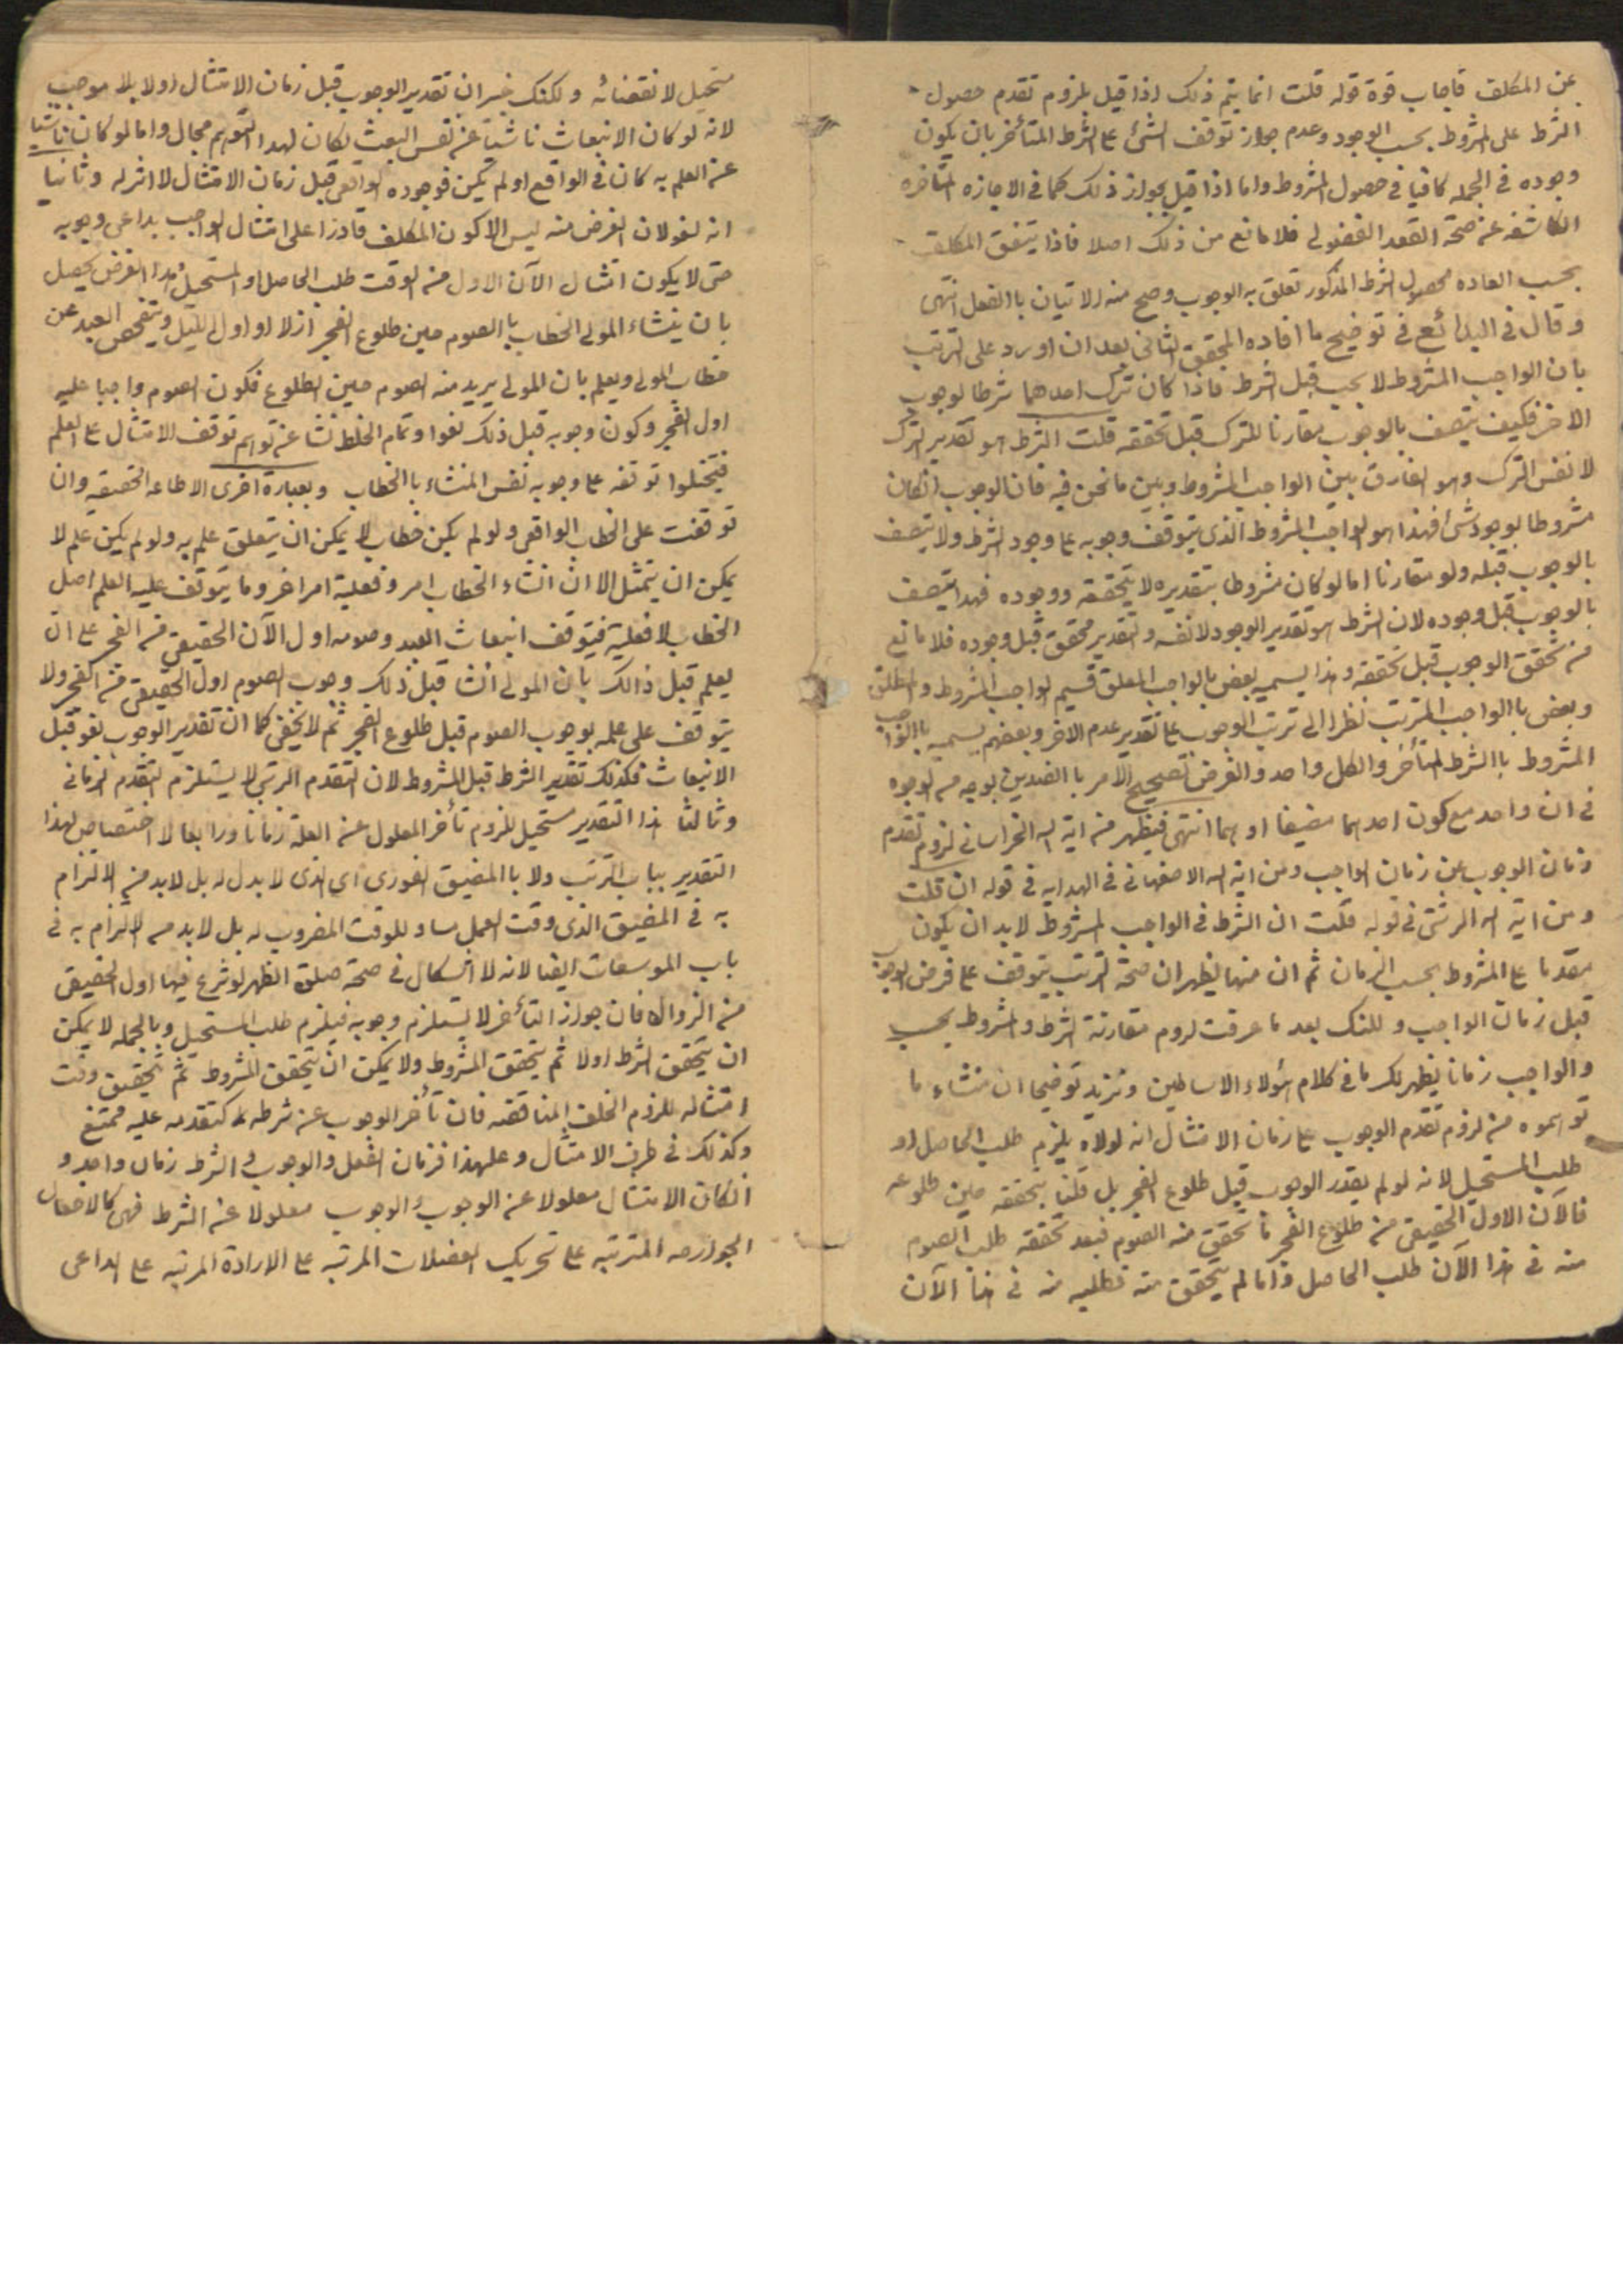 عن المكلف فاجاب قوة قوله قلت انما يتم ذلك اذا قيل بلزوم تقدم حصول
الشرط على المشروط بحسب الوجود وعدم جواز توقف الشئ على الشرط المتأخر بان يكون
وجوده في الجمله كافيا في حصول المشروط واما اذا قيل بجواز ذلك كما في الاجازه المتأخره
الكاشفه عن صحة العقد الفضولى فلا مانع من ذلك اصلا فاذا يتفق المكلف
بحسب العاده محصول الشرط المذكور تعلق به الوجوب وصح منه الاتيان باالفعل انتهى
وقال في البدائع في توضيح ما افاده المحقق الثاني بعد ان اورد على الترتب
بان الواجب المشروط لا يجب قبل الشرط فاذا كان ترك احدهما شرطا لوجوب
الاخر فكيف يتصف بالوجوب مقارنا للترك قبل تحققه قلت الشرط هو تقدير الترك
لا نفس الترك وهو الفارق بين الواجب المشروط وبين ما نحن فيه فان الوجوب ان كان
مشروطا بوجود شئ فهذا هو الواجب المشروط الذى يتوقف وجوبه على وجود الشرط ولا يتصف
بالوجوب قبله ولو مقارنا اما لو كان مشروطا بتقديره لا بتحققه ووجوده فهذا يتصف
بالوجوب قبل وجوده لان الشرط هو تقدير الوجود لا نفسه والتقدير محقق قبل وجوده فلا مانع
من تحقق الوجوب قبل تحققه وهذا يسميه بعض بالواجب المعلق قسيم الواجب المشروط والمطلق
وبعض باالواجب المترتب نظرا الى ترتب الوجوب على تقدير عدم الاخر وبعضهم يسميه باالواجب
المشروط باالشرط المتأخر والكل واحد والغرض تصحيح الامر باالضدين بوجه من الوجوه
في ان واحد مع كون احدهما مضيقا او هما انتهى فيظهر من اية الله الخراساني لزوم تقدم
زمان الوجوب عن زمان الواجب ومن اية الله الاصفهاني في الهدايه في قوله ان قلت
ومن اية الله الرشتى في قوله قلت ان الشرط في الواجب المشروط لابد ان يكون
مقدما على المشروط بحسب الزمان ثم ان منها يظهر ان صحة الترتب يتوقف على فرض الوجوب
قبل زمان الواجب وللنك بعد ما عرفت لزوم مقارنة الشرط والمشروط بحسب
والواجب زمانا يظهر لك ما في كلام هؤلاء الاساطين ونزيد توضيحا ان منشاء ما
توهموه من لزوم تقدم الوجوب على زمان الامتثال انه لولاه يلزم طلب الحاصل او
طلب المستحيل لانه لو لم يقدر الوجوب قبل طلوع الفجر بل قلنا بتحققه حين طلوعه
فالآن الاول الحقيقى من طلوع الفجر ما تحقق منه الصوم فبعد تحققه طلب الصوم
منه في هذا الآن طلب الحاصل واما لم يتحقق منه فطلبه منه في هذا الآن
مستحيل لانقضائه ولكنك خبير ان تقدير الوجوب قبل زمان الامتثال اولا بلا موجب
لانه لو كان الانبعاث ناشئا عن نفس البعث لكان لهذا التوهم مجال واما لو كان ناشيا
عن العلم به كان في الواقع او لم يكن فوجوده الواقعى قبل زمان الامتثال لا اثر له وثانيا
انه لغو لان الغرض منه ليس الا كون المكلف قادرا على امتثال الواجب بداعى وجوبه
حتى لا يكون امتثال الآن الاول من الوقت طلب الحاصل او المستحيل وهذا الغرض يحصل
بان ينشاء المولى الخطاب باالصوم حين طلوع الفجر ازلا او اول الليل ويتفحص العبد عن
خطاب المولى ويعلم بان المولى يريد منه الصوم حين الطلوع فكون الصوم واجبا عليه
اول الفجر وكون وجوبه قبل ذلك لغوا وتمام الخلط نشا عن توهم توقف الامتثال على العلم
فتخيلوا توقفه على وجوبه نفس المنشاء باالخطاب وبعبارة اخرى الاطاعه الحقيقيه وان
توقفت على الخطاب الواقعى ولو لم يكن خطاب لا يمكن ان يتعلق علم به ولو لم يكن علم لا
يمكن ان يمتثل الا ان انشاء الخطاب امر وفعلية امر اخر وما يتوقف عليه العلم اصل
الخطاب لا فعلية فيتوقف انبعاث العبد وصومه اول الآن الحقيقى من الفجر على ان
يعلم قبل ذالك بان المولى انشا قبل ذلك وجوب الصوم اول الحقيقى من الفجر ولا
يتوقف على علمه بوجوب الصوم قبل طلوع الفجر ثم لا يخفى كما ان تقدير الوجوب لغو قبل
الانبعاث فكذلك تقدير الشرط قبل المشروط لان التقدم الرتبى لا يستلزم التقدم الزمانى
وثالثا هذا التقدير مستحيل للزوم تأخر المعلول عن العلة زمانا ورابعا لا اختصاص لهذا
التقدير بباب الترتب ولا باالمضيق الفورى اى الذى لا بدل له بل لابد من الالتزام
به في المضيق الذى وقت العمل مساو للوقت المضروب له بل لابد من الالتزام به في
باب الموسعات ايضا لانه لا اشكال في صحة صلوة الظهر لو شرع فيها اول الحقيقى
من الزوال فان جواز التأخر لا يستلزم وجوبه فيلزم طلب المستحيل وبالجمله لا يمكن
ان يتحقق الشرط اولا ثم يتحقق المشروط ولا يمكن ان يتحقق المشروط ثم تحقيق وقت
امتثاله للزوم الخلف المناقضه فان تأخر الوجوب عن شرطه كتقدمه عليه ممتنع
وكذلك في طرف الامتثال وعلهذا فزمان الفعل والوجوب والشرط زمان واحد و
ان كان الامتثال معلولا عن الوجوب والوجوب معلولا عن الشرط فهى كالافعال
الجوارحه المترتبه على تحريك العضلات المرتبه على الارادة المرتبه على الداعى